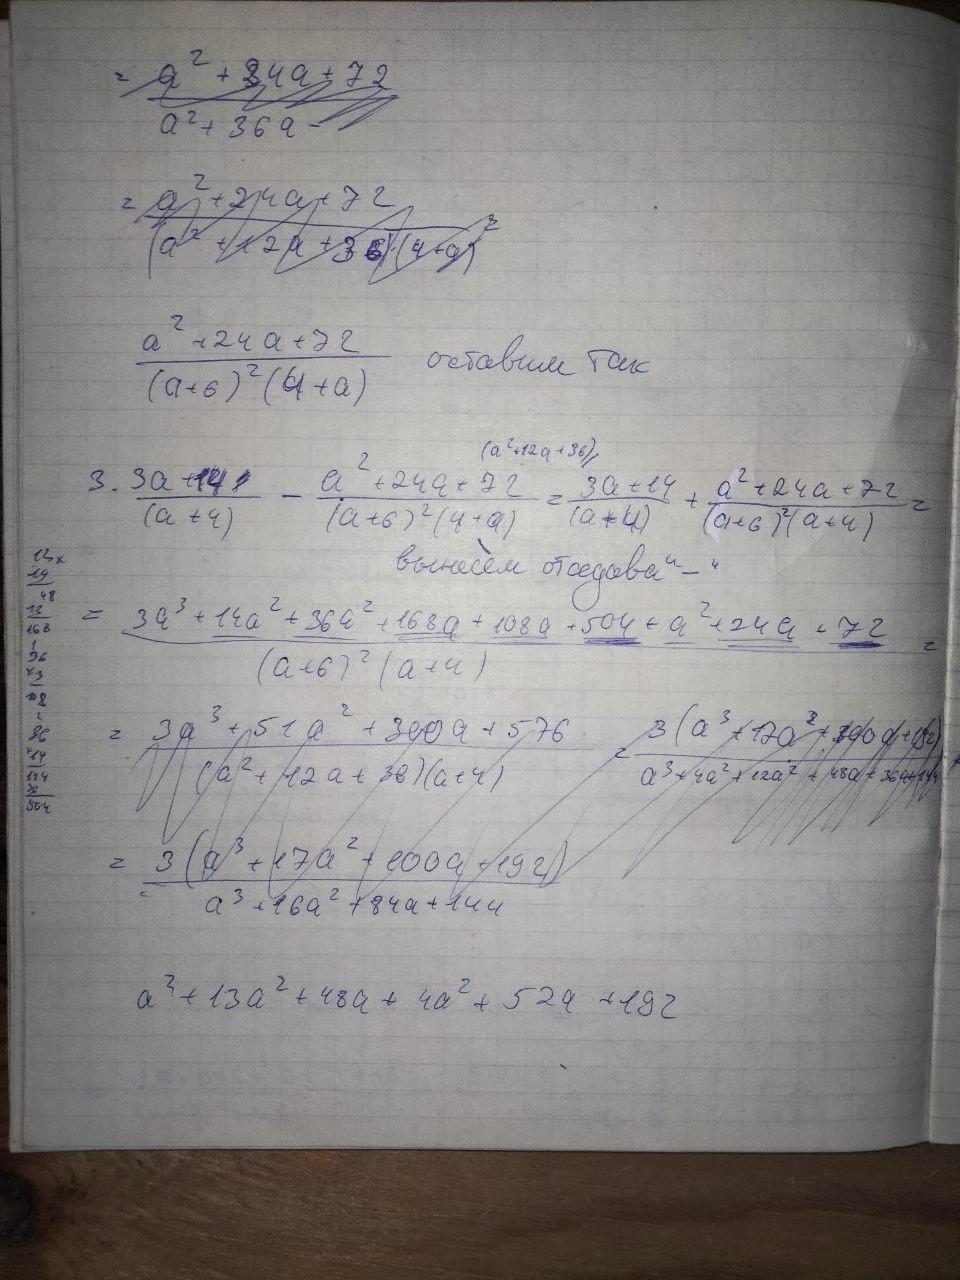 = a² + 24a + 72 / a² + 36a -
= a² + 24a + 72 / (a² + 12a + 36)(4+a) =
a² + 24a + 72 / (a+6)² (4+a) оставим так
(a²+12a+36)
3. 3a+14 / (a+4) - a² + 24a + 72 / (a+6)² (4+a) = 3a+14 / (a+4) + a² + 24a + 72 / (a+6)² (a+4) =
вынесем отсюдова "-"
= 3a³ + 14a² + 36a² + 168a + 108a + 504 + a² + 24a + 72 / (a+6)² (a+4) =
= 3a³ + 51a² + 300a + 576 / (a² + 12a + 36)(a+4) = 3(a³ + 17a² + 100a + 192) / a³ + 4a² + 12a² + 48a + 36a + 144
= 3(a³ + 17a² + 100a + 192) / a³ + 16a² + 84a + 144
a³ + 13a² + 48a + 4a² + 52a + 192
12x
14
48
12
168
36
3
108
36
14
144
36
504